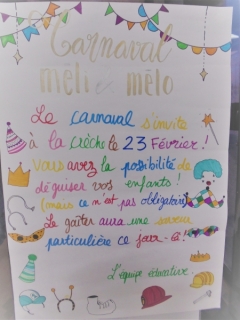 Carnaval
méli et mélo
Le carnaval s'invite
à la crèche le 23 Février !
Vous avez la possibilité de
déguiser vos enfants !
(mais ce n'est pas obligatoire)
Le goûter aura une saveur
particulière ce jour-là !
L'équipe éducative.